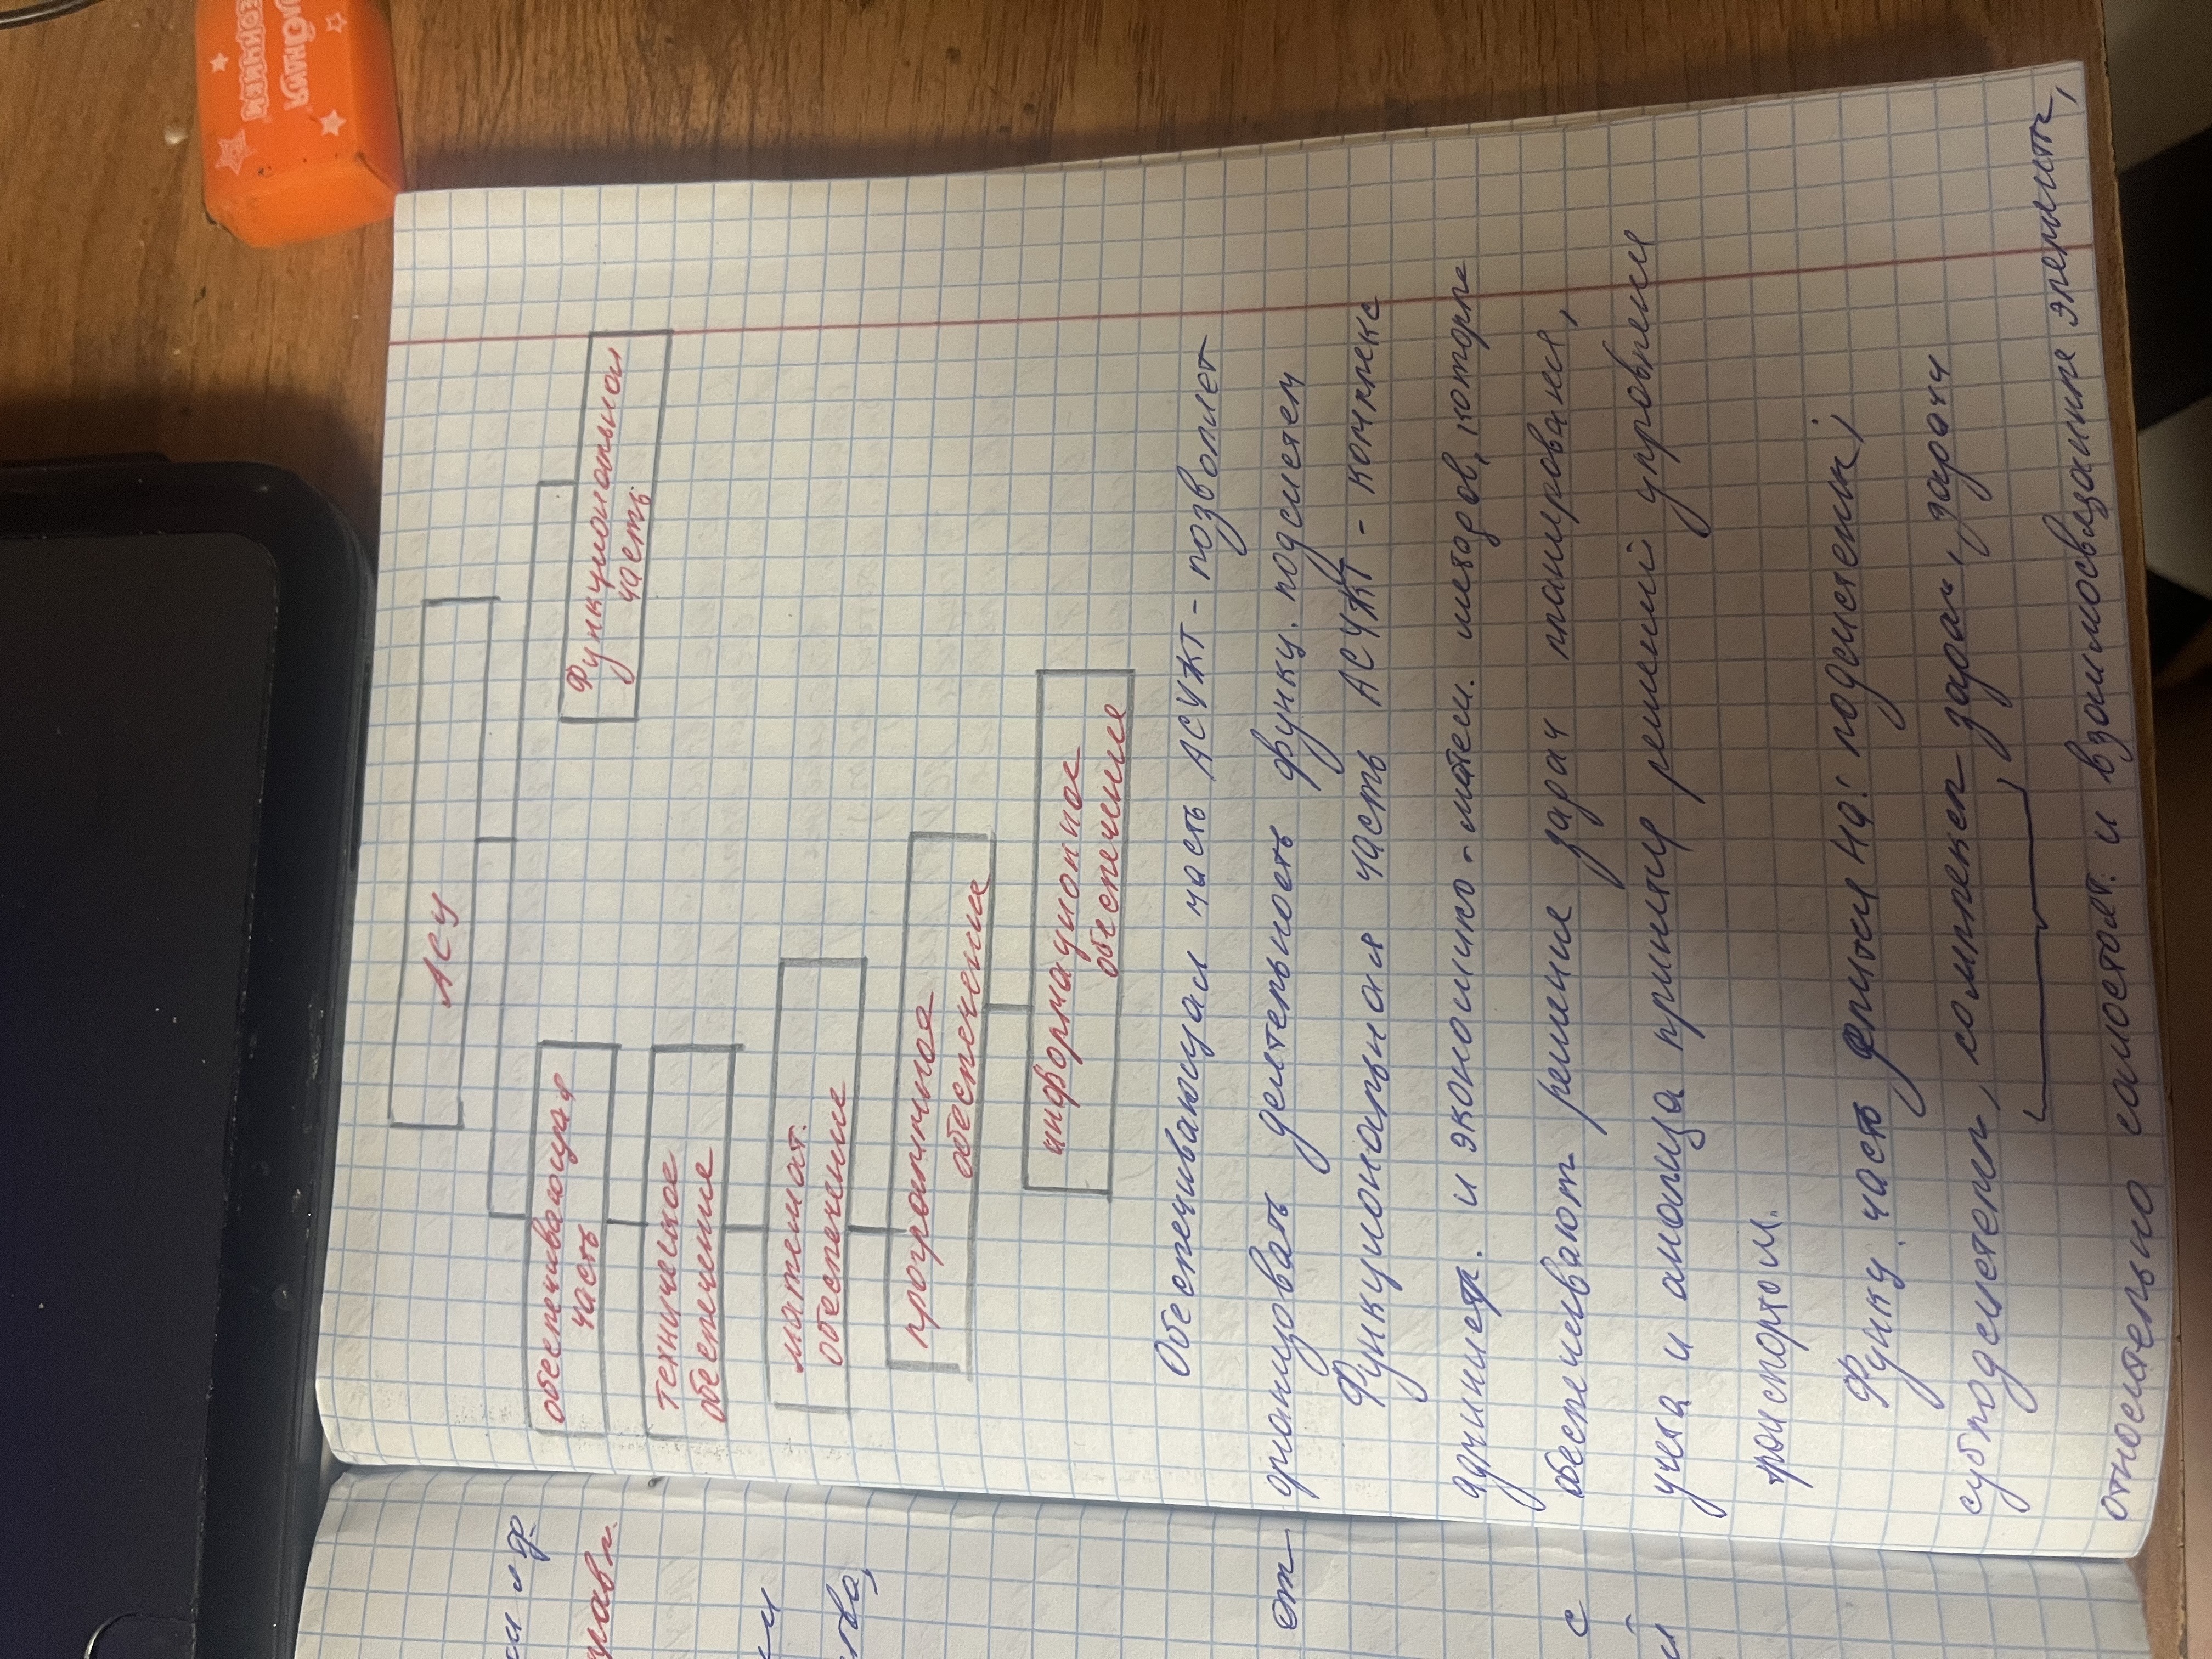 АСУ
обеспечивающая
часть
Функциональная
часть
техническое
обеспечение
математ.
обеспечение
программное
обеспечение
информационное
обеспечение
Обеспечивающая часть АСУЖТ - позволяет
организовать деятельность функц. подсистем
Функциональная часть АСУЖТ - комплекс
администр. и экономико-матем. методов, которые
обеспечивают решение задач планирования,
учета и анализа принятия решений управления
транспортом.
Функц. часть делится на: подсистемы,
субподсистемы, комплексы задач, задачи
относительно самостоят. и взаимосвязанные элементы,
от
с